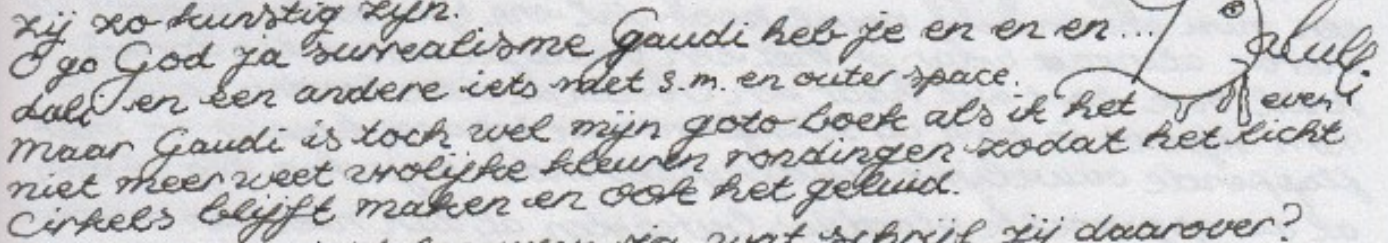 zij zo kunstig zijn.
O go God ja surrealisme Gaudi heb je en en en...
dali en een andere iets met s.m. en outer space.
maar Gaudi is toch wel mijn goto boek als ik het even
niet meer weet vrolijke kleuren rondingen zodat het licht
Cirkels blijft maken en ook het geluid.
ja wat schrijf zij daarover?